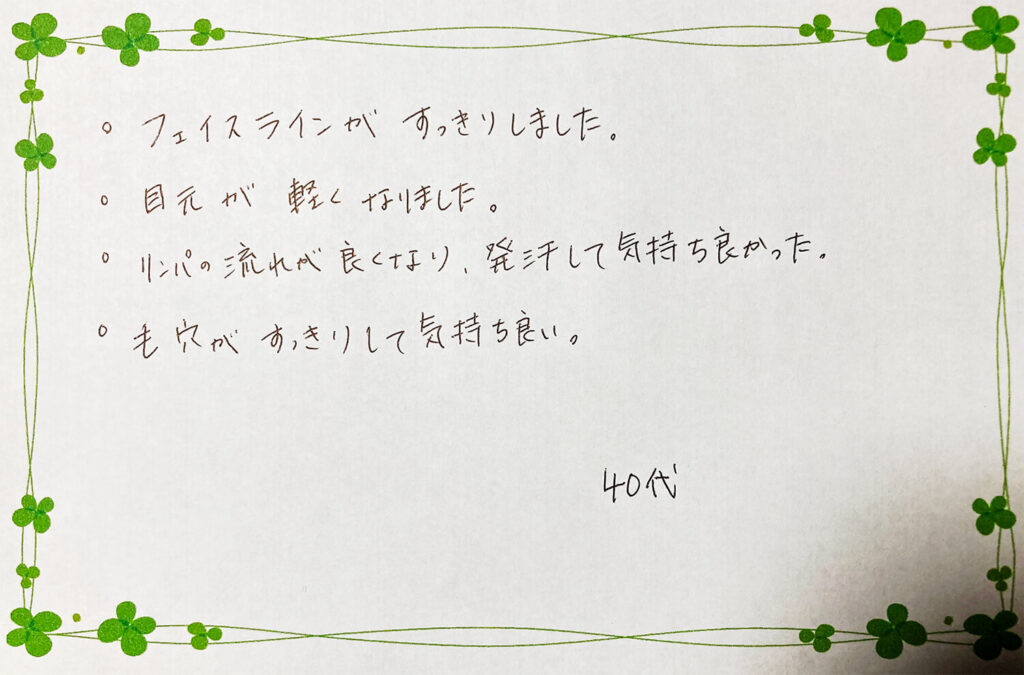 。フェイスラインが すっきりしました。
。目元が 軽くなりました。
。リンパの流れが良くなり、発汗して気持ち良かった。
。毛穴がすっきりして気持ち良い。
40代